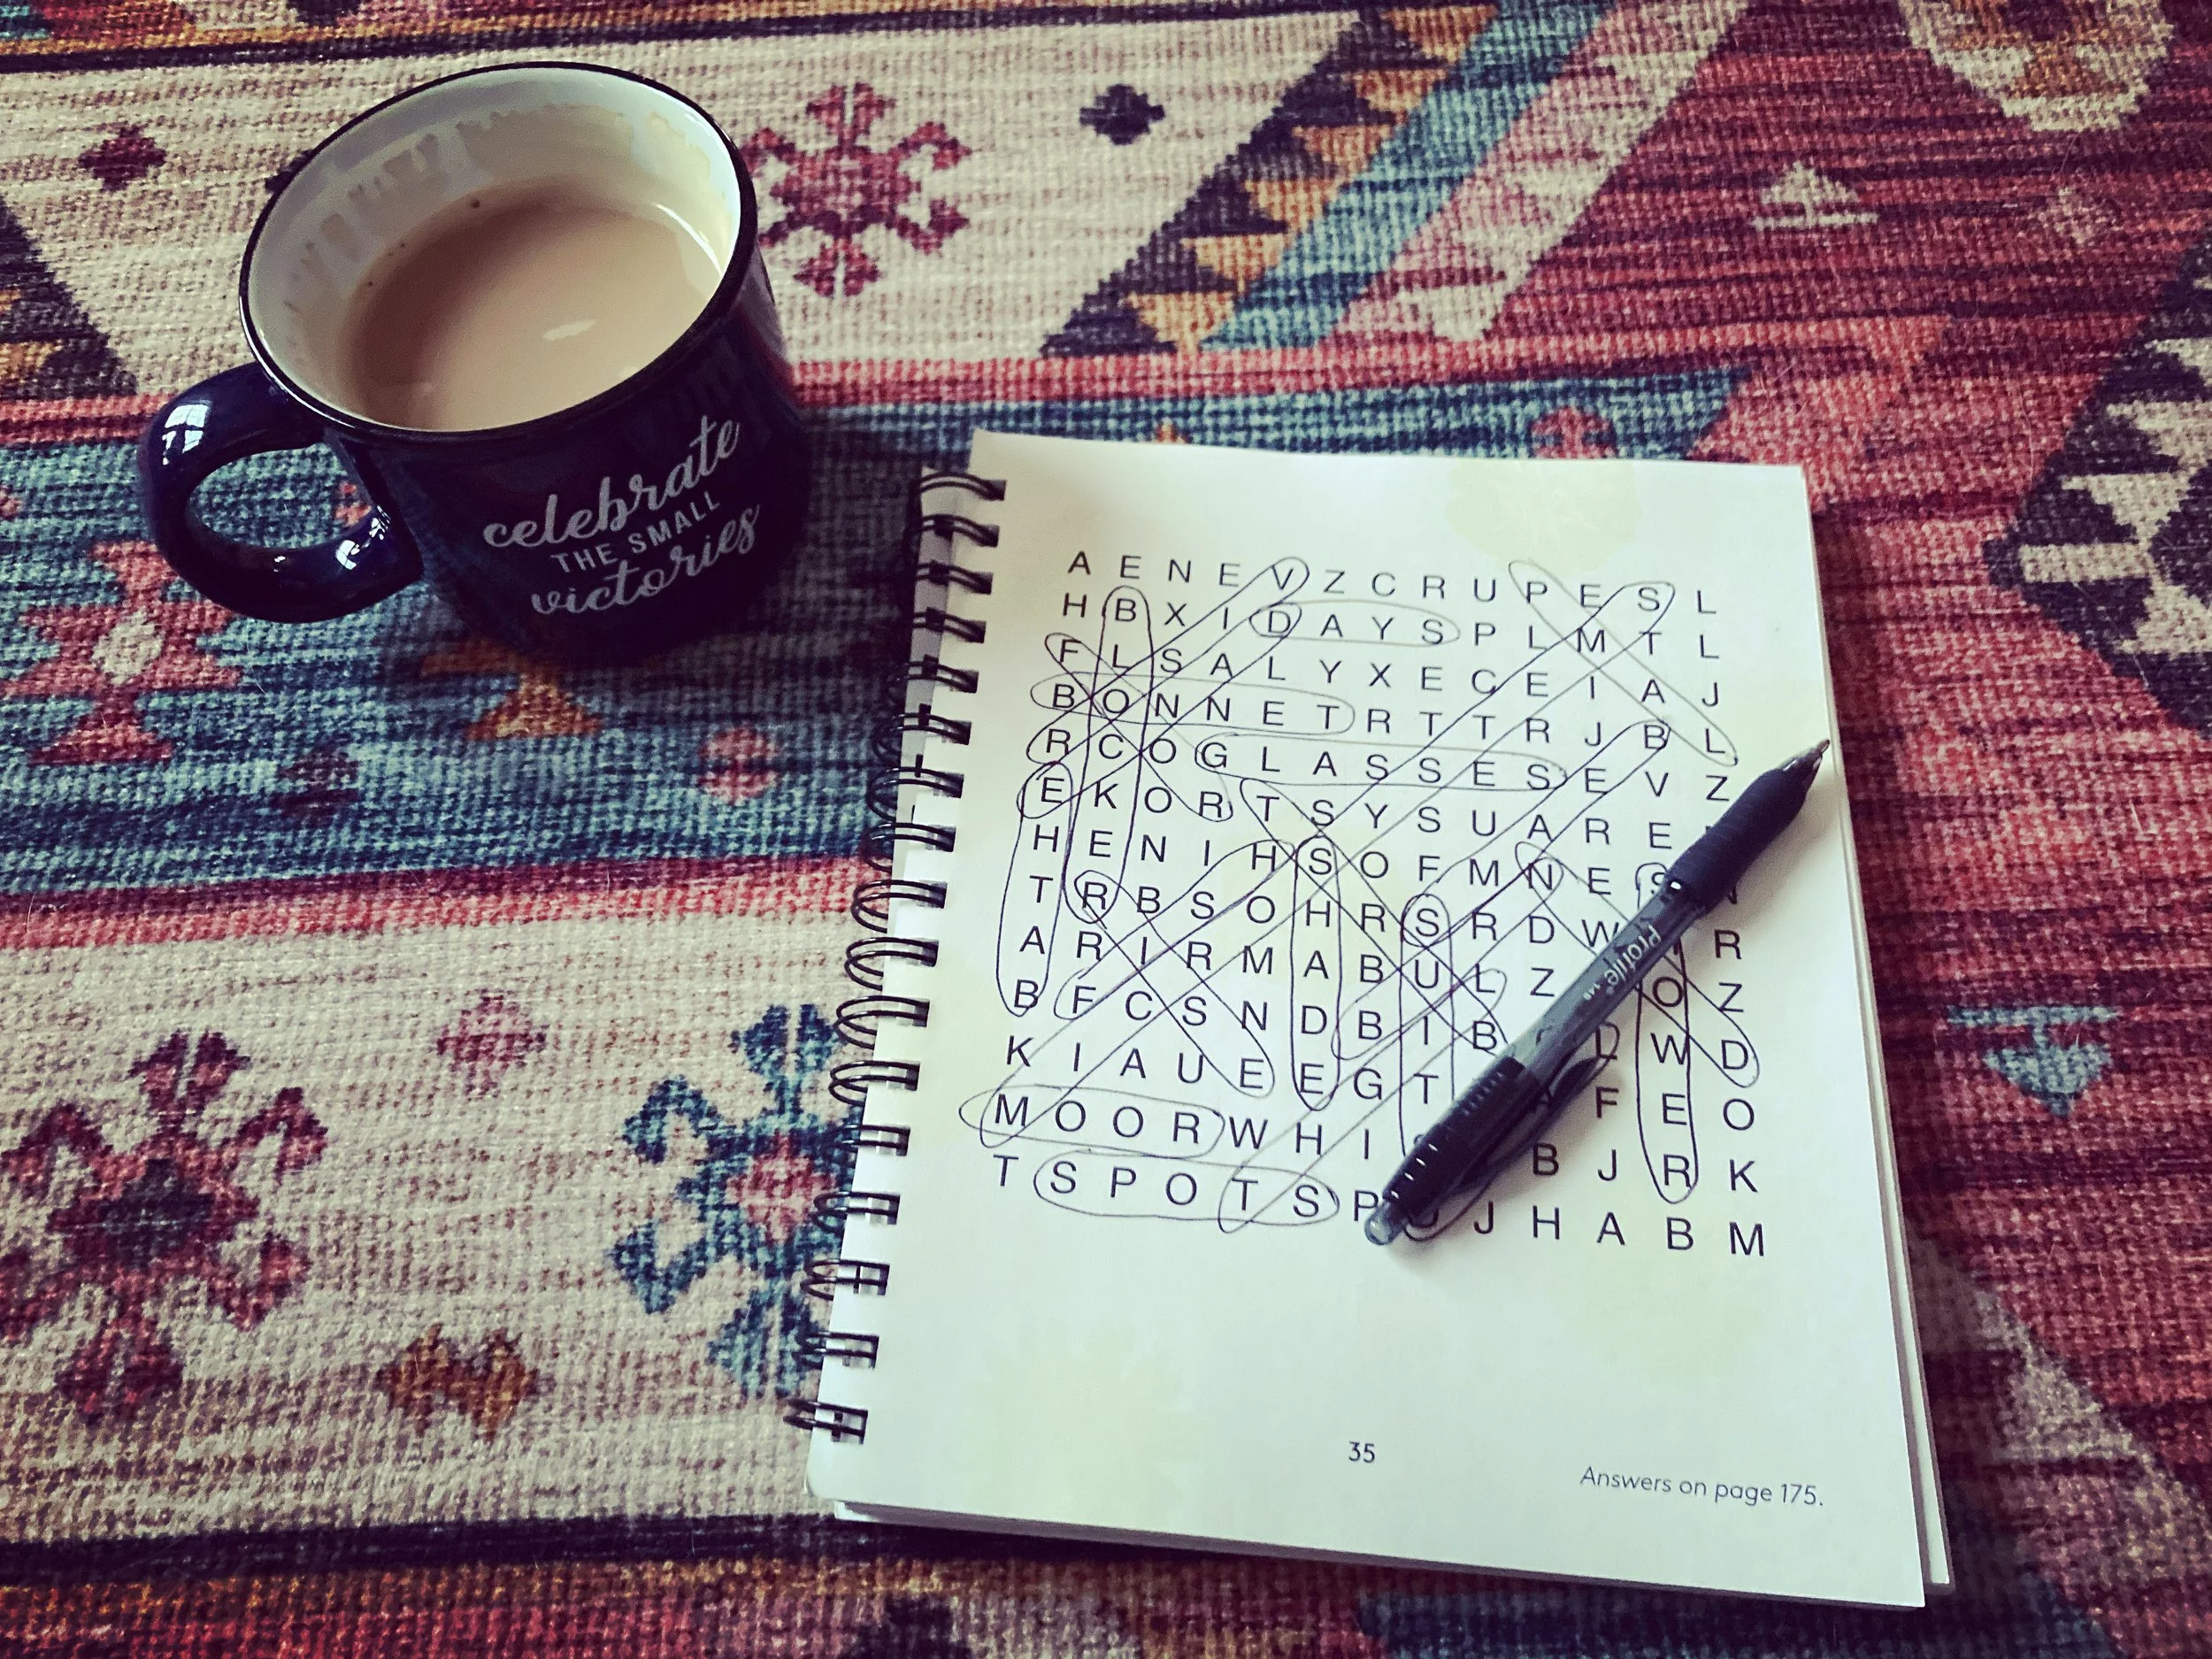 celebrate
THE SMALL
victories
A E N E V Z C R U P E S L
H B X I D A Y S P L M T L
F L S A L Y X E C E I A J
B O N N E T R T T R J B L
R C O G L A S S E S E V Z
E K O R T S Y S U A R E
H E N I H S O F M N E S
T R B S O H R S R D W R
A R I R M A B U L Z O Z
B F C S N D B I B W D
K I A U E E G T F E O
M O O R W H I B J R K
T S P O T S P J H A B M
Profile
35
Answers on page 175.